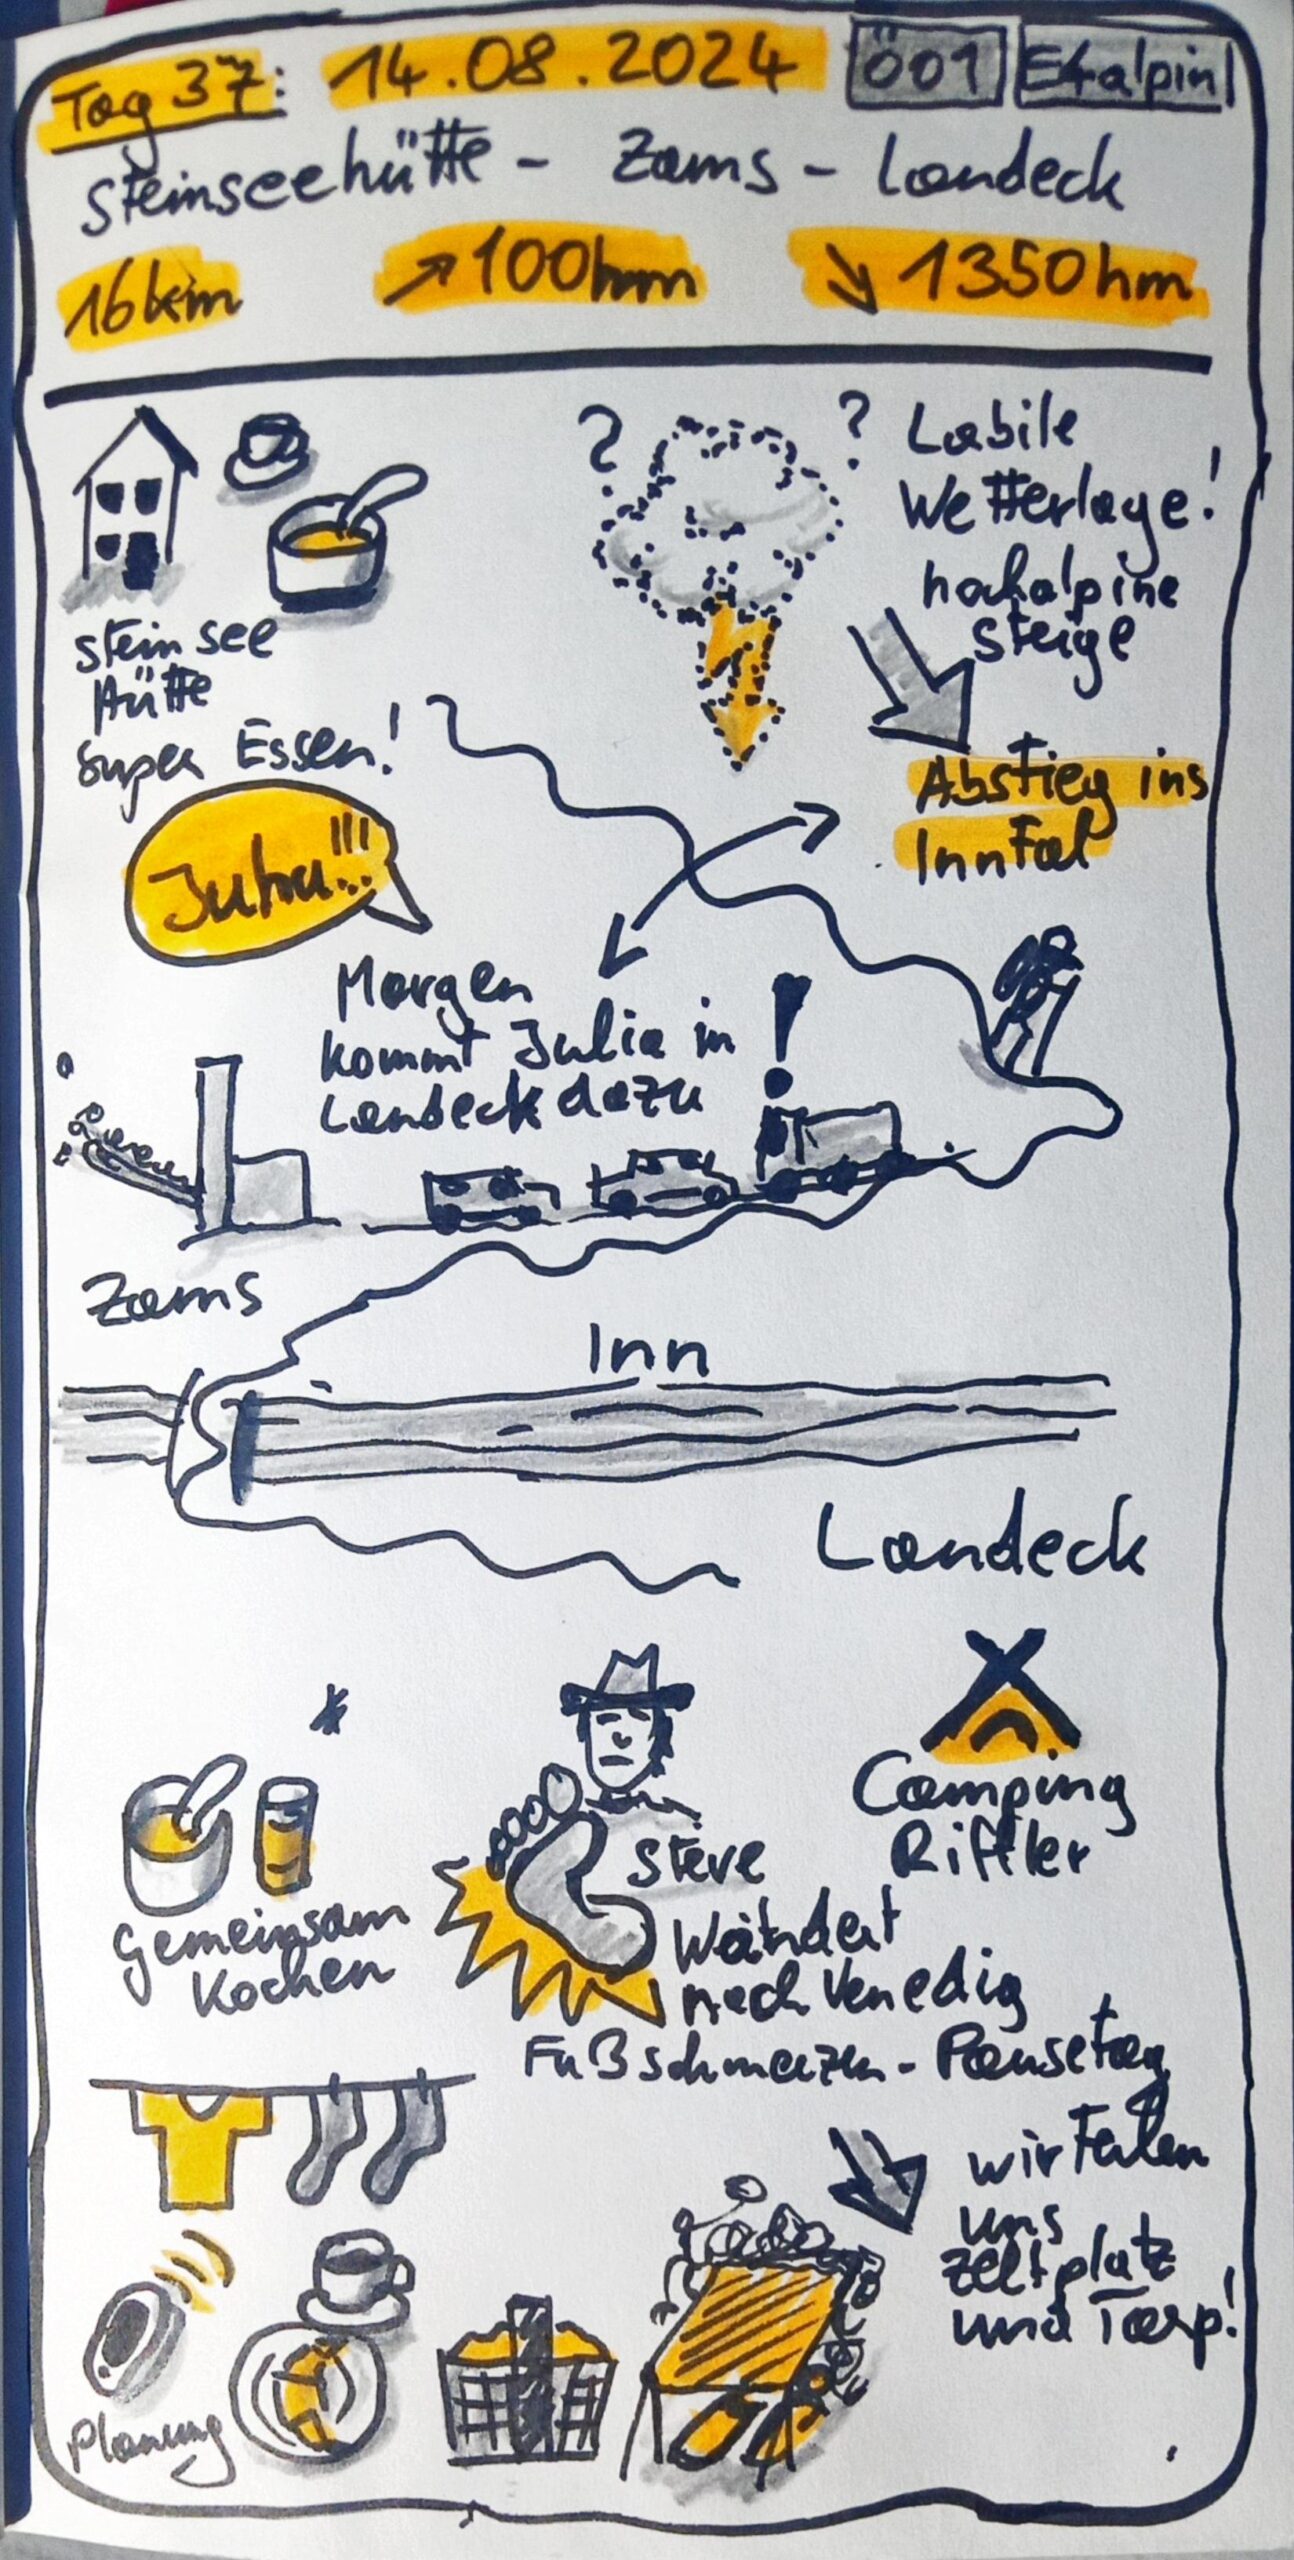 Tag 37: 14.08.2024 Ö01 E4alpin
Steinseehütte - Zams - Landeck
16km ↗100hm ↘1350hm
? ?
Labile
Wetterlage!
hochalpine
Steige
Steinsee
Hütte
Super Essen!
Abstieg ins
Inntal
Juhu!!!
Morgen
kommt Julia in
Landeck dazu
!
Zams
Inn
Landeck
Camping
Riffler
Steve
Wandert
nach Venedig
Fußschmerzen - Pausetag
Gemeinsam
Kochen
wir Teilen
uns
Zeltplatz
und Tarp!
Planung